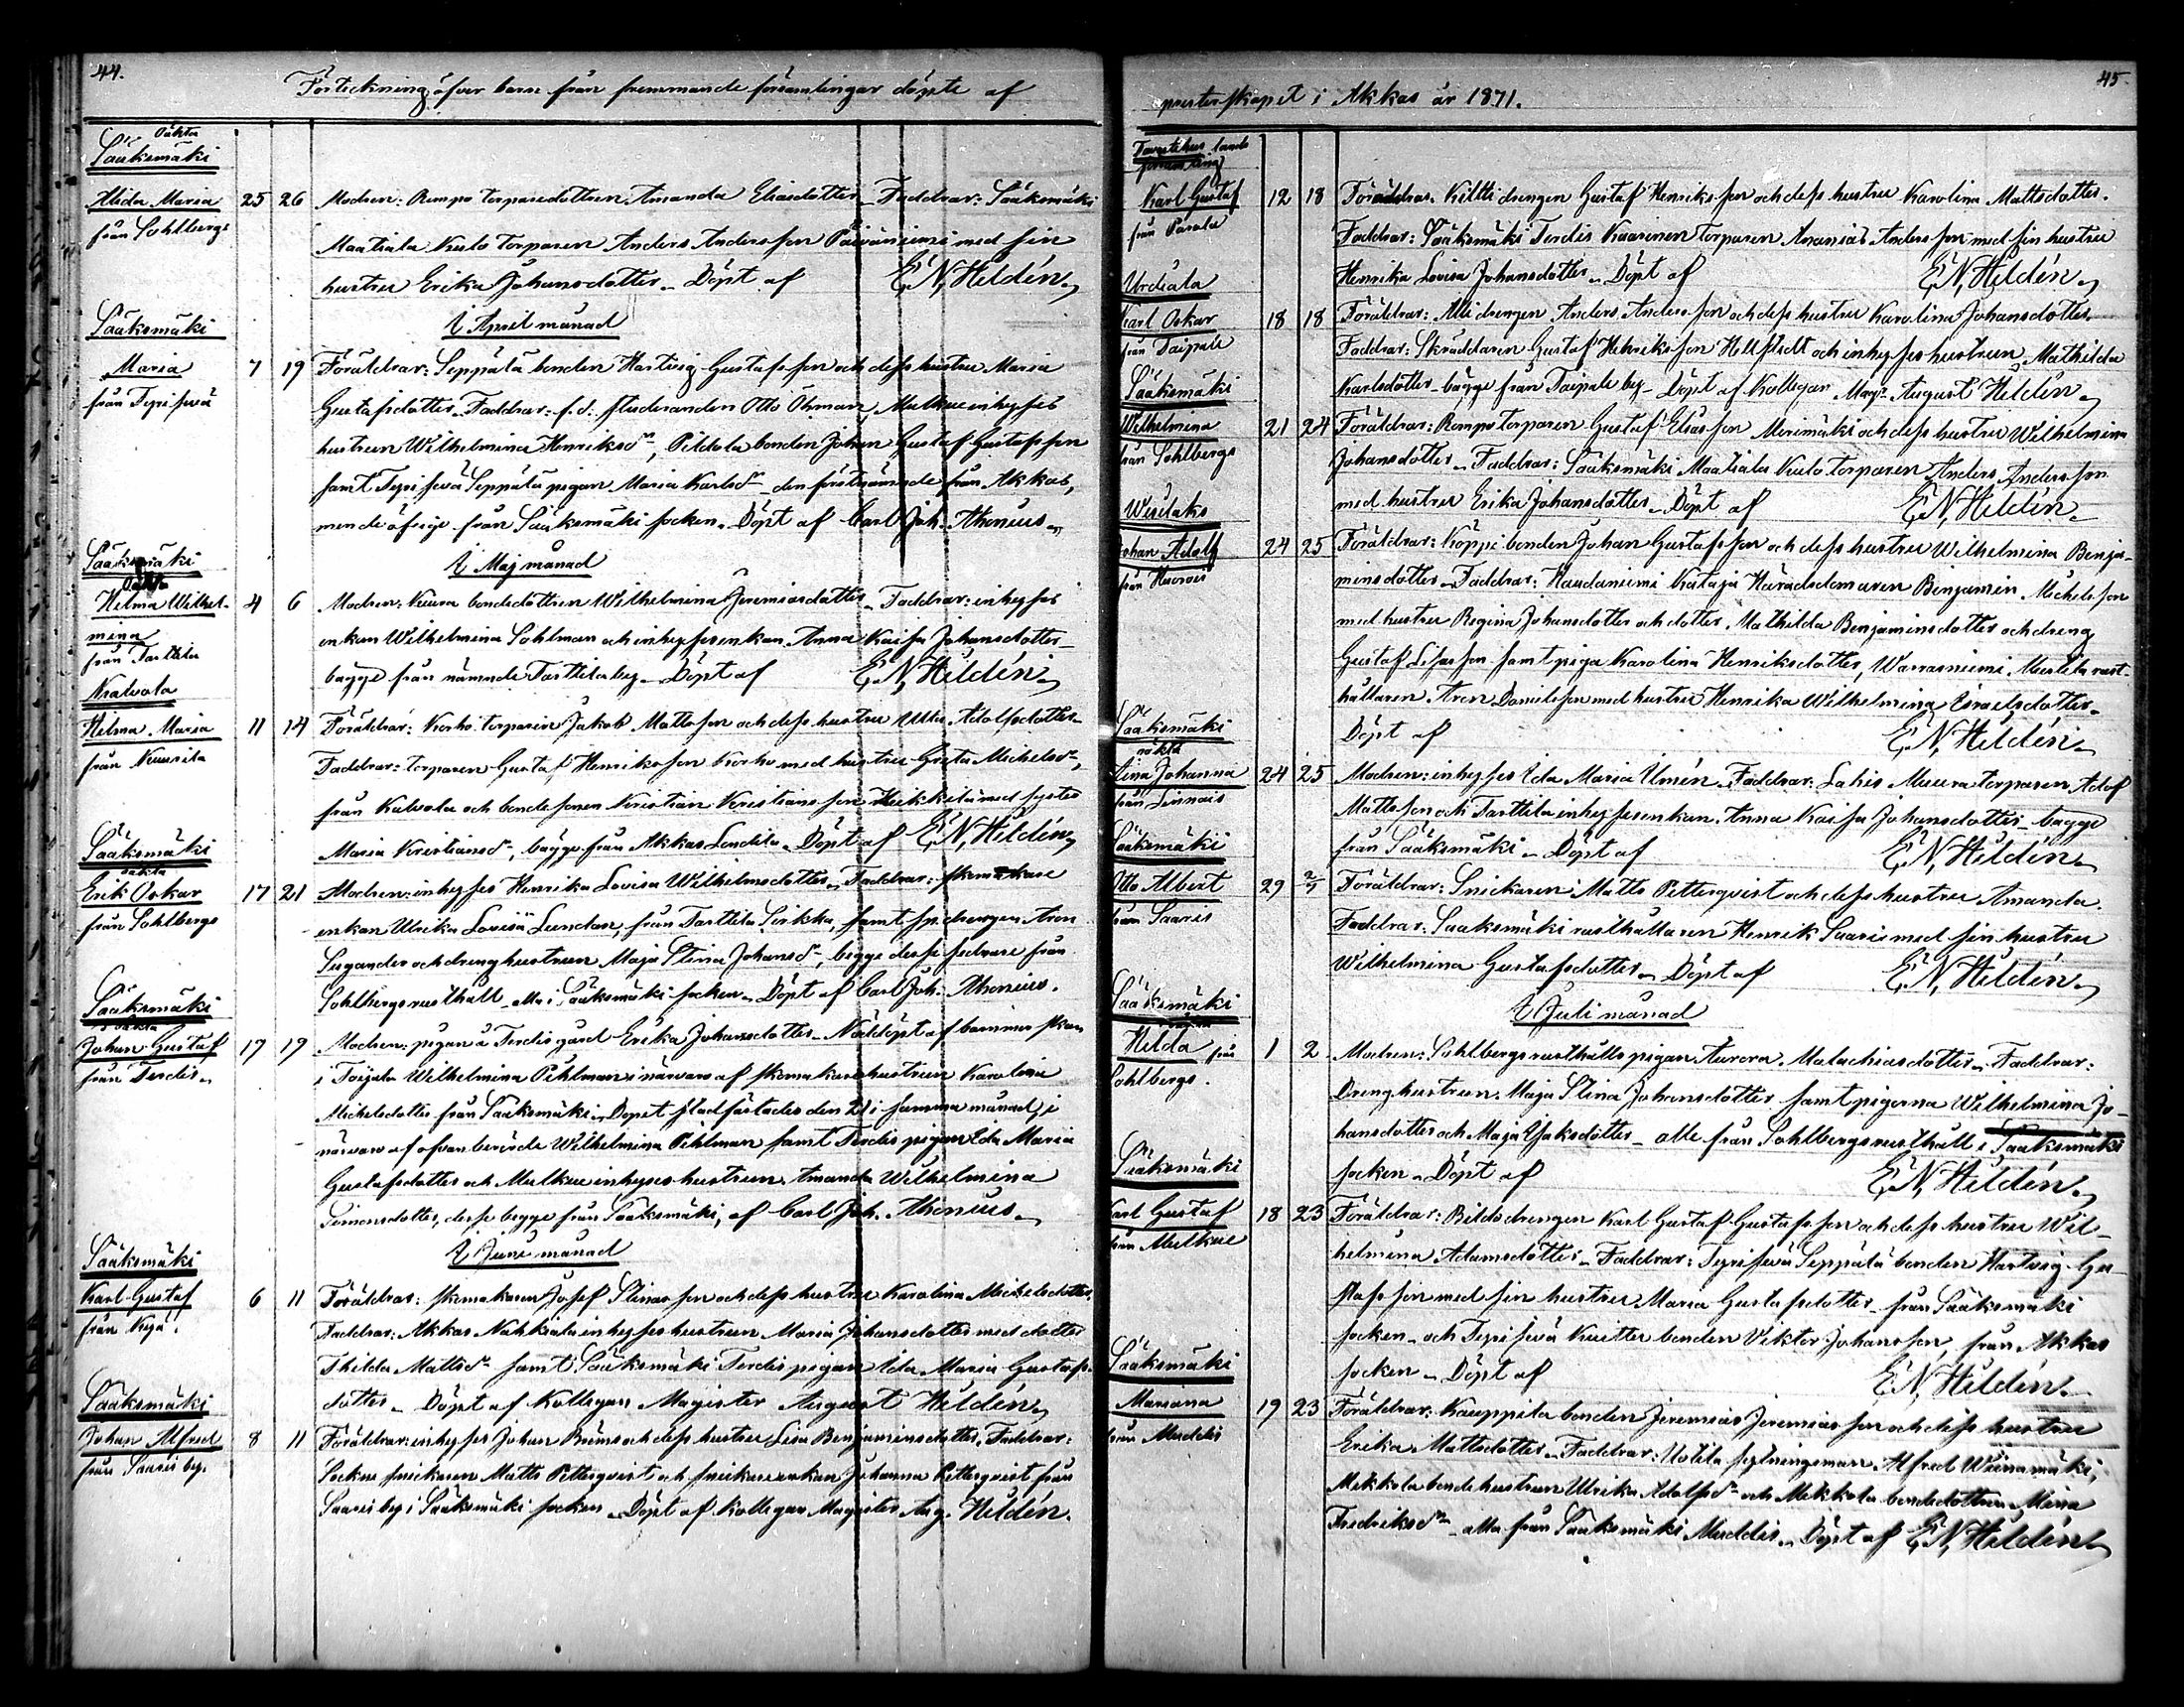 44.
Förteckning öfver barn från främmande församlingar döpte af
Sääksmäki
oäkta
Alida Maria 25 26 Modren: Rempo torparedottren Amanda Eliasdotter. Faddrar: Sääksmäki
från Sohlbergs
Maatiala torparen Anders Andersson Päiväniemi med sin
hustru Erika Johansdotter. Döpt af E. N. Hildén.
I April månad
Sääksmäki
Maria 7 19 Föräldrar: Seppälä bonden Hartvig Gustafsson och dess hustru Maria
Gustafsdotter. Faddrar: f.d. studeranden Otto Öhman, Mulkue inhyses
hustrun Wilhelmina Henriksdr, bonden Johan Gustaf Gustafsson
samt Seppälä pigan Maria Karlsdr den förstnämnde från Akkas,
men de öfrige från Sääksmäki socken. Döpt af Carl Joh. Ahonius.
I Maj månad
Sääksmäki
oäkta
Helma Wilhel-
mina
från Tarttila
4 6 Modren: bondedottren Wilhelmina Jeremiasdotter. Faddrar: inhyses
enkan Wilhelmina Sohlman och inhysesenkan Anna Kaisa Johansdotter
bägge från nämnde Tarttila by. Döpt af E. N. Hildén.
Kalvola
Hilma Maria 11 14 Föräldrar: Korho torparen Jakob Mattsson och dess hustru Ulla Adolfsdotter.
från Kuurila
Faddrar: torparen Gustaf Henriksson Korho med hustru Greta Michelsdr,
från Kalvola och bondesonen Kristian Kristiansson Heikkilä med syster
Maria Kristiansdr, bägge från Akkas Lendila. Döpt af E. N. Hildén.
Sääksmäki
oäkta
Erik Oskar 17 21 Modren: inhyses Henrika Lovisa Wilhelmsdotter. Faddrar: skomakare
från Sohlbergs
enkan Ulrika Lovisa Lundan, från Tarttila Sirkka, samt drengen Aron
och drenghustrun Maja Stina Johansdr, begge desse sednare från
Sohlbergs rusthåll alla i Sääksmäki socken. Döpt af Carl Joh. Ahonius.
Sääksmäki
oäkta
Johan Gustaf 17 19 Modren: pigan å Terdis gård Erika Johansdotter. Nöddöpt af barnmorskan
från Terdis.
i Toijala Wilhelmina Pihlman i närvaro af skomakarehustrun Karolina
Michelsdotter från Sääksmäki. Dopet stadfästades den 21 i samma månad i
närvaro af ofvanberörde Wilhelmina Pihlman samt Terdis pigan Ida Maria
Gustafsdotter och Mulkue inhyseshustrun Amanda Wilhelmina
Simonsdotter, desse begge från Sääksmäki, af Carl Joh. Ahonius.
I Juni månad
Sääksmäki
Karl Gustaf 6 11 Föräldrar: skomakaren Josef Stinasson och dess hustru Karolina Michelsdotter.
Faddrar: Akkas Nahkiala inhyseshustrun Maria Johansdotter med dotter
Thilda Mattsdr samt Sääksmäki Terdis pigan Ida Maria Gustafs-
dotter. Döpt af Kollegan Magister August Hildén.
Sääksmäki
Johan Alfred 8 11 Föräldrar: inhyses Johan och dess hustru Lisa Benjaminsdotter. Faddrar:
från Saaris by.
Sockne snickaren Matts Petterqvist och snickareenkan Johanna Petterqvist från
Saaris by i Sääksmäki socken. Döpt af Kollegan Magister Aug. Hildén.
45.
presterskapet i Akkas år 1871.
Tavastehus lands
församling
Karl Gustaf 12 18 Föräldrar: drengen Gustaf Henriksson och dess hustru Karolina Mattsdotter.
från Parola
Faddrar: Sääksmäki Terdis Kaarinen torparen Ananias Andersson med sin hustru
Henrika Lovisa Johansdotter. Döpt af E. N. Hildén.
Urdiala
Karl Oskar 18 18 Föräldrar: drengen Anders Andersson och dess hustru Karolina Johansdotter.
från Taipale
Faddrar: Skräddaren Gustaf Henriksson Hellstedt och inhyseshustrun Mathilda
Karlsdotter bägge från Taipale by. Döpt af Kollegan Magr August Hildén.
Sääksmäki
Wilhelmina 21 24 Föräldrar: Rempo torparen Gustaf Eliasson Merimäki och dess hustru Wilhelmina
från Sohlbergs
Johansdotter. Faddrar: Sääksmäki Maatiala torparen Anders Andersson
med hustru Erika Johansdotter. Döpt af E. N. Hildén.
Wesilaks
Johan Adolf 24 25 Föräldrar: Koppi bonden Johan Gustafsson och dess hustru Wilhelmina Benja-
minsdotter. Faddrar: Haudaniemi Krataja Häradsdomaren Benjamin Michelsson
med hustru Regina Johansdotter och dotter Mathilda Benjaminsdotter och dreng
Gustaf samt piga Karolina Henriksdotter, Warrasniemi rust-
hållaren Aron Danielsson med hustru Henrika Wilhelmina Israelsdotter.
Döpt af E. N. Hildén.
Sääksmäki
oäkta
Lina Johanna 24 25 Modren: inhyses Ida Maria Almén. Faddrar: Lahis Muura torparen Adolf
från Linnais
Mattsson och Tarttila inhysesenkan Anna Kaisa Johansdotter bägge
från Sääksmäki. Döpt af E. N. Hildén.
Sääksmäki
Otto Albert 29 2/7 Föräldrar: Snickaren Matts Petterqvist och dess hustru Amanda.
från Saaris
Faddrar: Sääksmäki rusthållaren Henrik Saaris med sin hustru
Wilhelmina Gustafsdotter. Döpt af E. N. Hildén.
I Juli månad
Sääksmäki
oäkta
Hilda från 1 2 Modren: Sohlbergs rusthålls pigan Aurora Malachiasdotter. Faddrar:
Sohlbergs.
Drenghustrun Maja Stina Johansdotter samt pigorna Wilhelmina Jo-
hansdotter och Maja Isaksdotter alla från Sohlbergs rusthåll i Sääksmäki
socken. Döpt af E. N. Hildén.
Sääksmäki
Karl Gustaf 18 23 Föräldrar: drengen Karl Gustaf Gustafsson och dess hustru Wil-
från Mulkue
helmina Adamsdotter. Faddrar: Seppälä bonden Hartvig Gu-
stafsson med sin hustru Maria Gustafsdotter från Sääksmäki
socken och bonden Viktor Johansson, från Akkas
socken. Döpt af E. N. Hildén.
Sääksmäki
Mariana 19 23 Föräldrar: Kauppila bonden Jeremias Jeremiasson och dess hustru
från Muddis
Erika Mattsdotter. Faddrar: Uotila sytningsman Alfred Wäinämäki,
Mikkola bondehustrun Ulrika Adolfsdr och Mikkola bondedottren Mina
Fredriksdr alla från Sääksmäki Muddis. Döpt af E. N. Hildén.